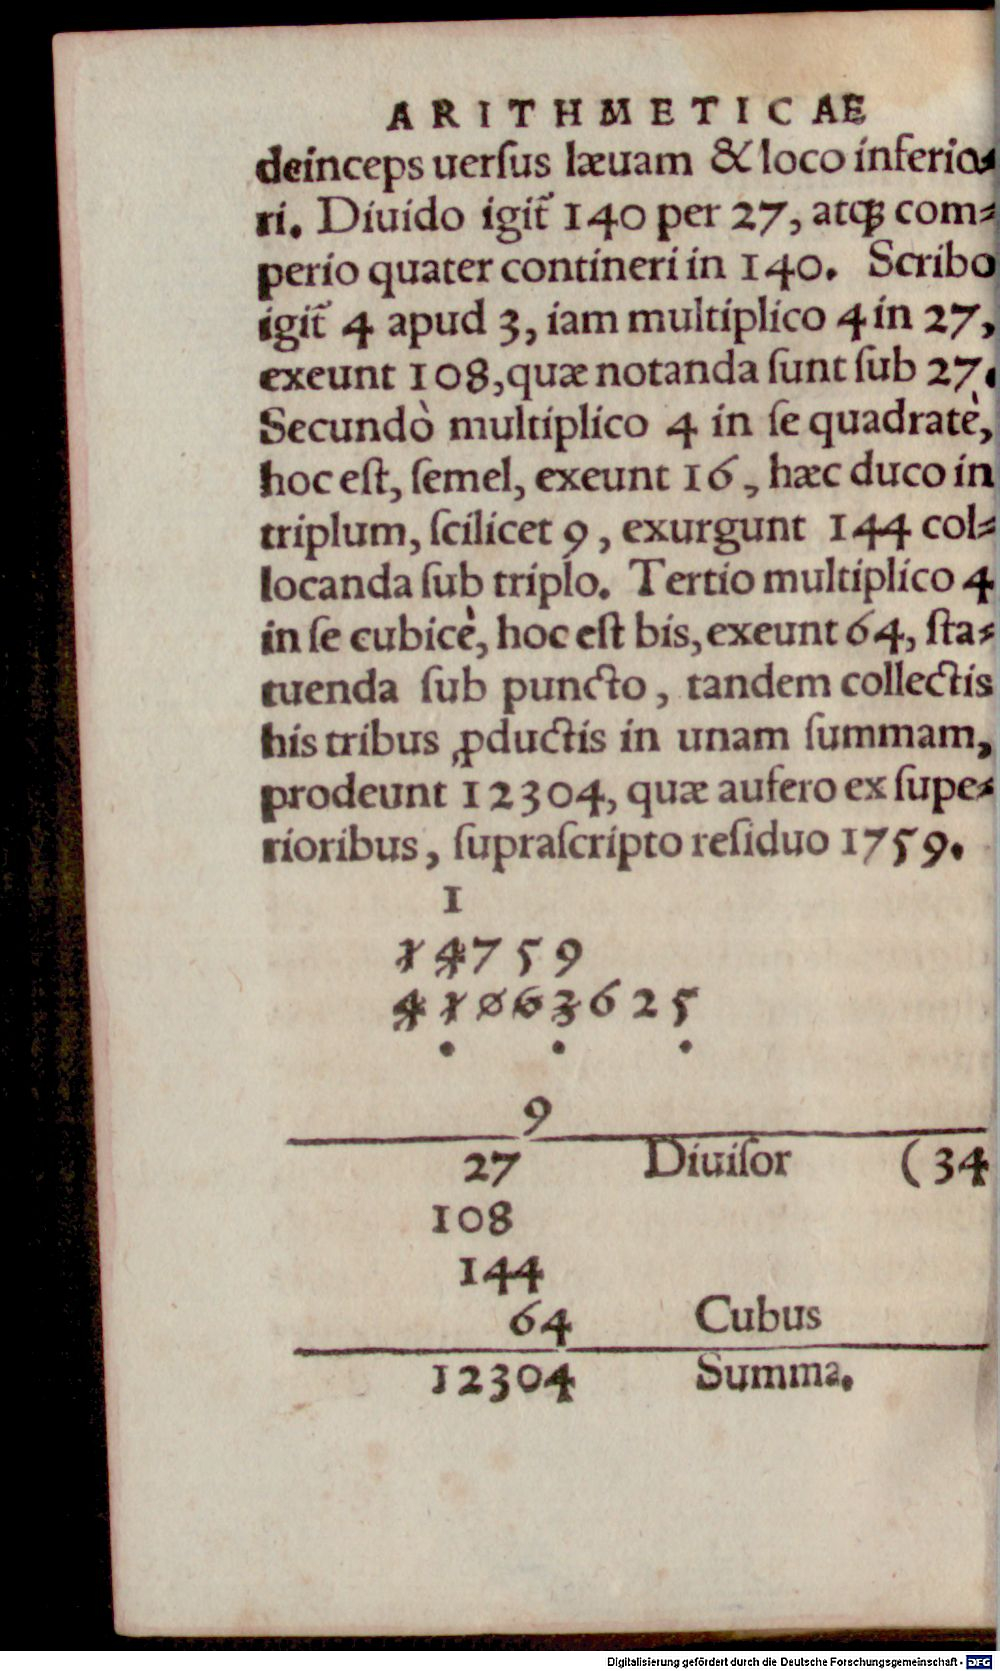 ARITHMETICAE
deinceps uerſus læuam & loco inferio⸗
ri. Diuido igit̃ 140 per 27, atqꝫ com⸗
perio quater contineri in 140. Scribo
igit̃ 4 apud 3, iam multiplico 4 in 27,
exeunt 108, quæ notanda ſunt ſub 27.
Secundò multiplico 4 in ſe quadratè,
hoc eſt, ſemel, exeunt 16, hæc duco in
triplum, ſcilicet 9, exurgunt 144 col⸗
locanda ſub triplo. Tertio multiplico 4
in ſe cubicè, hoc eſt bis, exeunt 64, ſta⸗
tuenda ſub puncto, tandem collectis
his tribus ꝓductis in unam ſummam,
prodeunt 12304, quæ aufero ex ſupe⸗
rioribus, ſupraſcripto reſiduo 1759.
1
14759
41063625
. . .
9
27 Diuiſor (34
108
144
64 Cubus
12304 Summa.
Digitalisierung gefördert durch die Deutsche Forschungsgemeinschaft - DFG